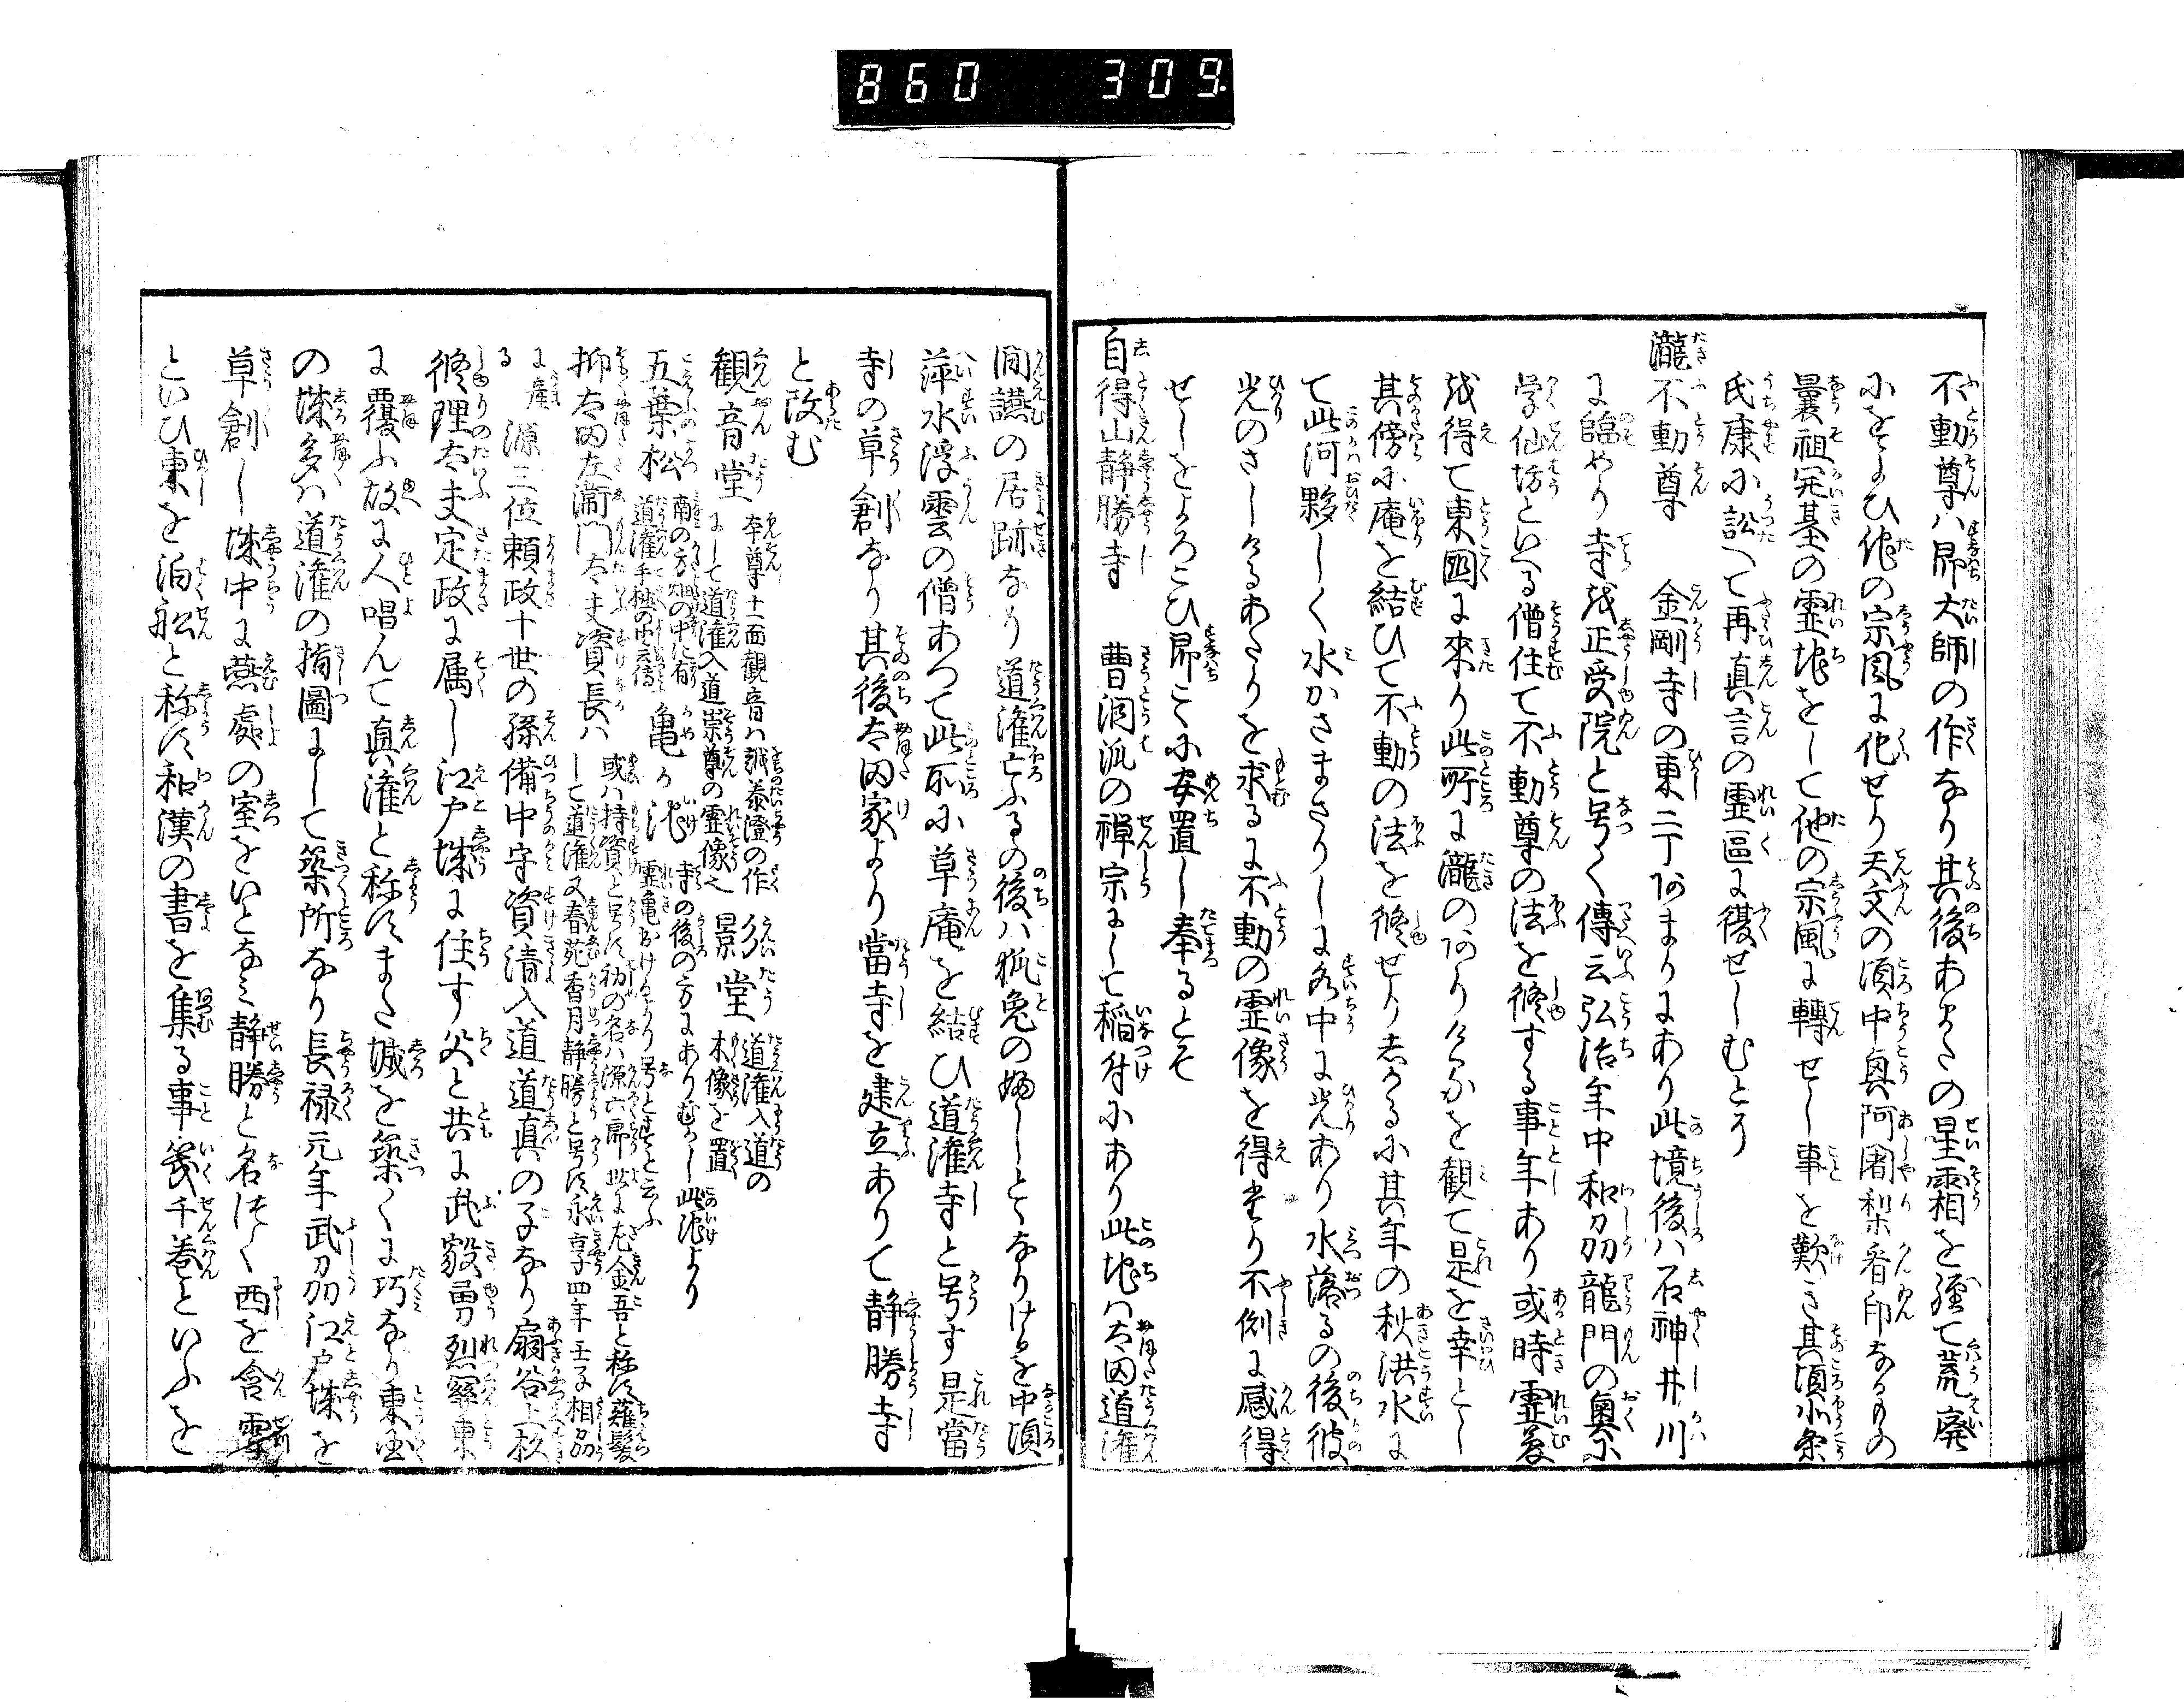 860 309
不動尊ハ即大師の作なり其後あまたの星霜を經て荒廃
におよひ他の宗風に化せり天文の頃中興阿闍梨宥印なるもの
曩祖開基の霊地をして他の宗風に轉せし事を歎き其頃北條
氏康に訟へて再真言の霊區に復せしむとそ
瀧不動尊 金剛寺の東二丁あまりにあり此境後ハ石神井川
に臨めり寺を正受院と号く傳云弘治年中和州龍門の奥に
学仙坊といへる僧住て不動尊の法を修する事年あり或時霊夢
を得て東國に來り此所に瀧のありけるを観て是を幸とし
其傍に庵を結ひて不動の法を修せりしかるに其年の秋洪水に
て此河夥しく水かさまさりしに水中に光あり水落るの後彼
光のさしけるあたりを求るに不動の霊像を得たり不測に感得
せしをよろこひ即こゝに安置し奉るとそ
自得山静勝寺 曹洞派の禅宗にして稲付にあり此地ハ太田道潅
閑讌の居跡なり道潅亡ふるの後ハ狐兎の栖しとなりけるを中頃
萍水浮雲の僧あつて此所に草庵を結ひ道潅寺と号す是當
寺の草創なり其後太田家より當寺を建立ありて静勝寺
と改む
観音堂 本尊十一面観音ハ越泰澄の作にして道潅入道崇尊の霊像也 影堂 道潅入道の木像を置
五葉松 南の方畑の中に有道潅手植の由云傳 亀か池 寺の後の方にありむかし此池より霊亀出けるより号とすと云ふ
抑太田左衛門太夫資長ハ 或ハ持資と号す初の名ハ源六郎世に左金吾と称す薙髪して道潅又春苑香月静勝と号す永享四年壬子相州に産る
源三位頼政十世の孫備中守資清入道道真の子なり扇谷上杦
修理太夫定政に属し江戸城に住す父と共に武毅勇烈関東
に覆ふ故に人唱んて真潅と称すまた城を築くに巧なり東国
の城多ハ道潅の指圖にして築所なり長禄元年武州江戸城を
草創し城中に燕處の室をいとなミ静勝と名けく西を含雪
といひ東を泊舩と称す和漢の書を集る事幾千巻といふを